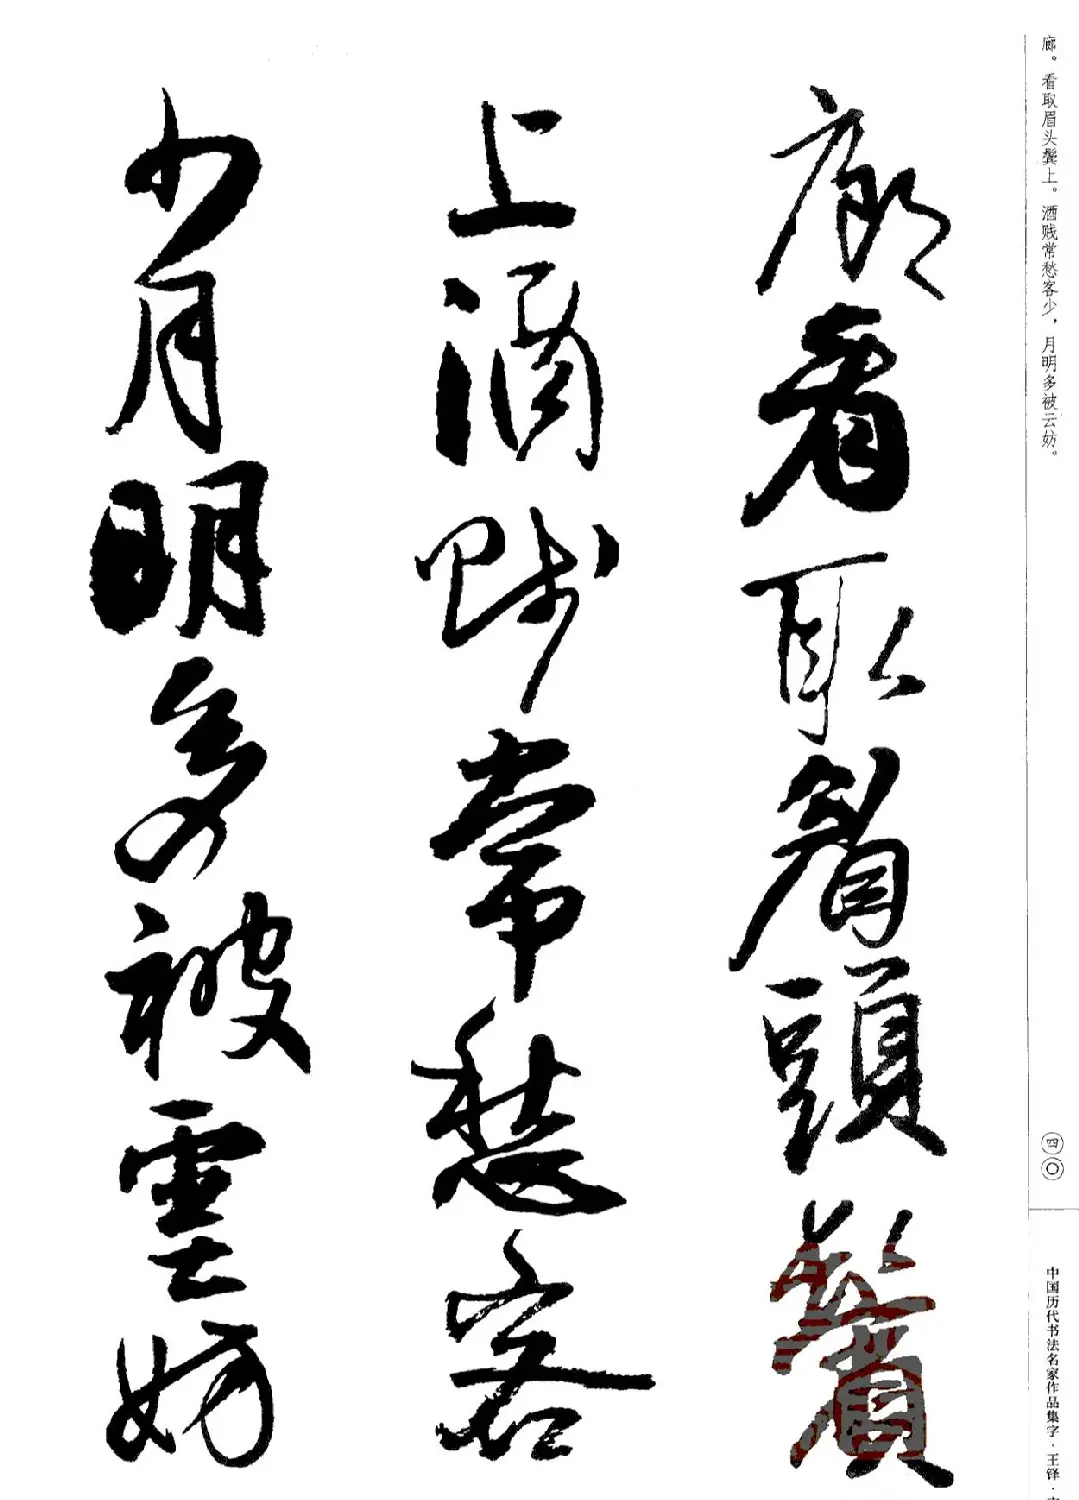 廊。看取眉头鬓上。酒贱常愁客少，月明多被云妨。
廊看取眉頭鬢
上酒賤常愁客
少月明多被雲妨
四〇
中国历代书法名家作品集字·王铎·